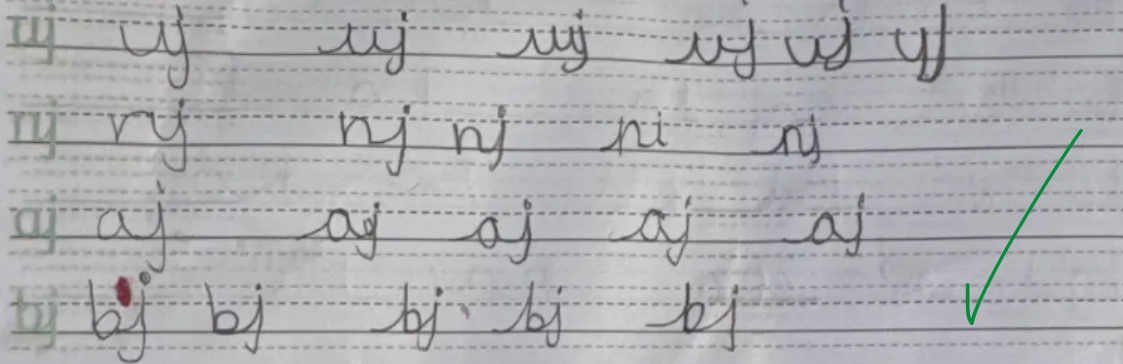 uj uj uj uj uj uj uj
nj nj nj nj ni nj
aj aj aj aj aj aj
bj bj bj bj bj bj